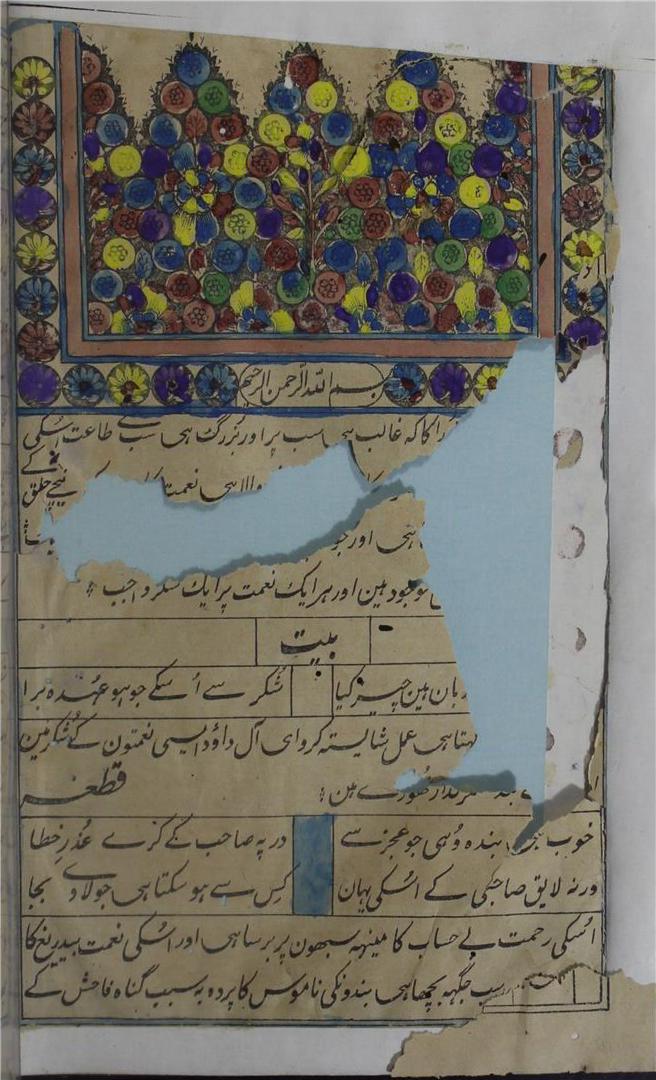 بسم الله الرحمن الرحيم
کا کہ غالب ہی سب پر اور بزرگ ہی سب سے طاعت اسکی
ہی نعمت نیچے خلق کے
ہی اور جو
موجود ہین اور ہر ایک نعمت پر ایک شکر واجب
بیت
ہین چیز کیا شکر سے اسکے جو ہو عہدہ برا
ہی عمل شایستہ کرو ای آل داؤد ایسی نعمتون کے شکر مین
ہین قطعہ
خوب ہی بندہ وُہی جو عجز سے در پہ صاحب کے کرے عُذرِ خطا
ورنہ لایق صاحبی کے اسکی یہان کِس سے ہو سکتا ہی جو لاوے بجا
اسکی رحمت بے حساب کا مینہہ سبھون پر برسا ہی اور اسکی نعمت بیدریغ کا
سب جگہہ بچھا ہی بندونکی ناموس کا پردہ بہ سبب گناہ فاحش کے